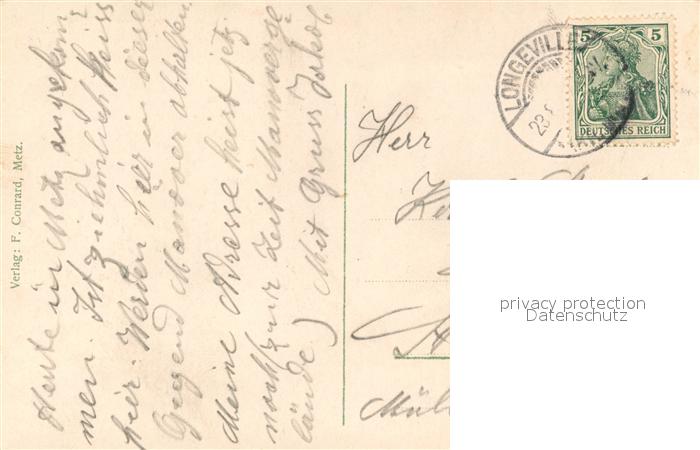 Heute in Metz angekom
men. Ist ziehmlich heiss
hier. Werden hier in dieser
Gegend Manöver abhalten.
Meine Adresse heist jetz
noch (zur Zeit Manövergelände)
Mit Gruss Jakob
Verlag: F. Conrard, Metz.
LONGEVILLE
23
5 5
DEUTSCHES REICH
Herr
privacy protection
Datenschutz